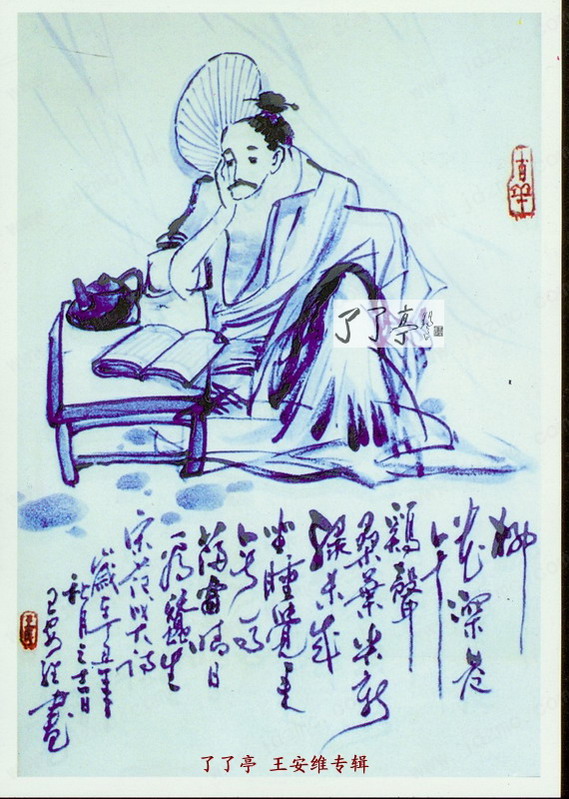 柳
花深巷
午
鷄聲
桑葉尖新
綠未成
坐睡覺來
無一事
滿窗晴日
看蠶生
宋范成大詩
歲在丁丑年
秋月之日
王安維畫
了了亭
了了亭 王安维专辑